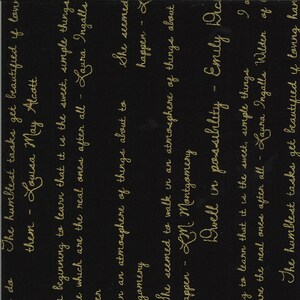 do The humblest tasks get beautified if lov
them - Louisa May Alcott
beginning to learn that it is the sweet, simple things
which are the real ones after all - Laura Ingalls
er
in an atmosphere of things about to She seemed
gomery happen - L
She seemed to walk in an atmosphere of things about
appen - L.M. Montgomery
Dwell in possibility - Emily Dic
g to learn that it is the sweet, simple things I a
are the real ones after all - Laura Ingalls Wilder of
The humblest tasks get beautified if loving ha